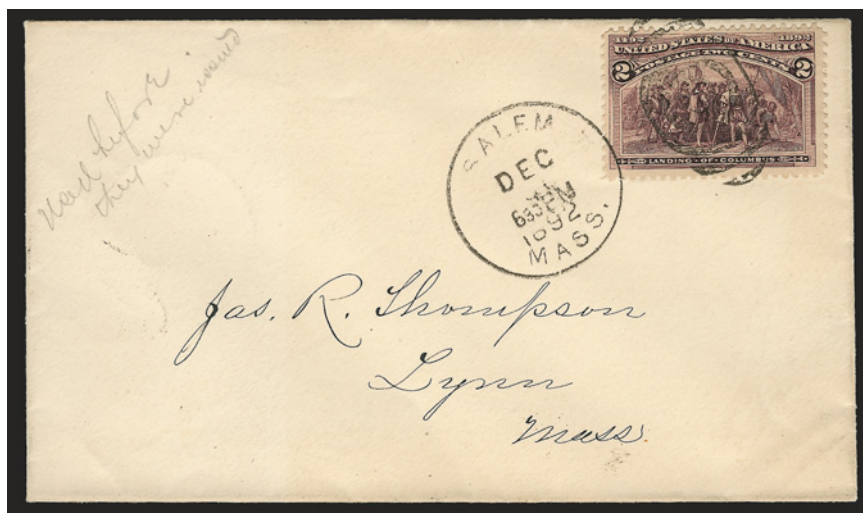 Used before
they were issued
1492 1892
UNITED STATES OF AMERICA
POSTAGE TWO CENTS
2 2
LANDING OF COLUMBUS
SALEM
DEC
630 PM
1892
MASS.
Jas. R. Thompson
Lynn
Mass.